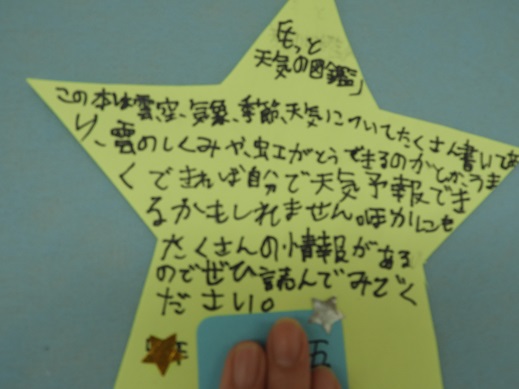 「もっと
天気の図鑑」
この本は雲、空、気象、季節、天気についてたくさん書いてあ
り、雲のしくみや、虹がどうできるのかとか、うま
くできれば自分で天気予報でき
るかもしれません。ほかにも
たくさんの情報がある
のでぜひ読んでみてく
ださい。
年 五